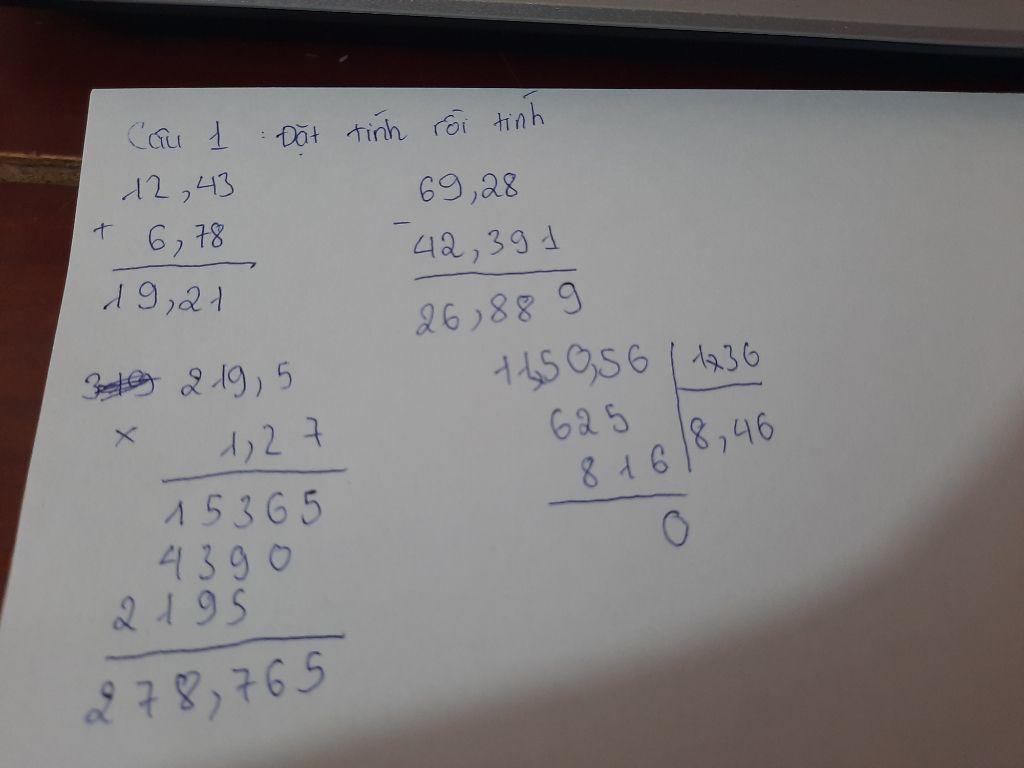 Câu 1 : Đặt tính rồi tính
12,43
+ 6,78
19,21
69,28
- 42,391
26,889
219,5
x 1,27
15365
4390
2195
278,765
11,50,56 1,36
625 8,46
816
0